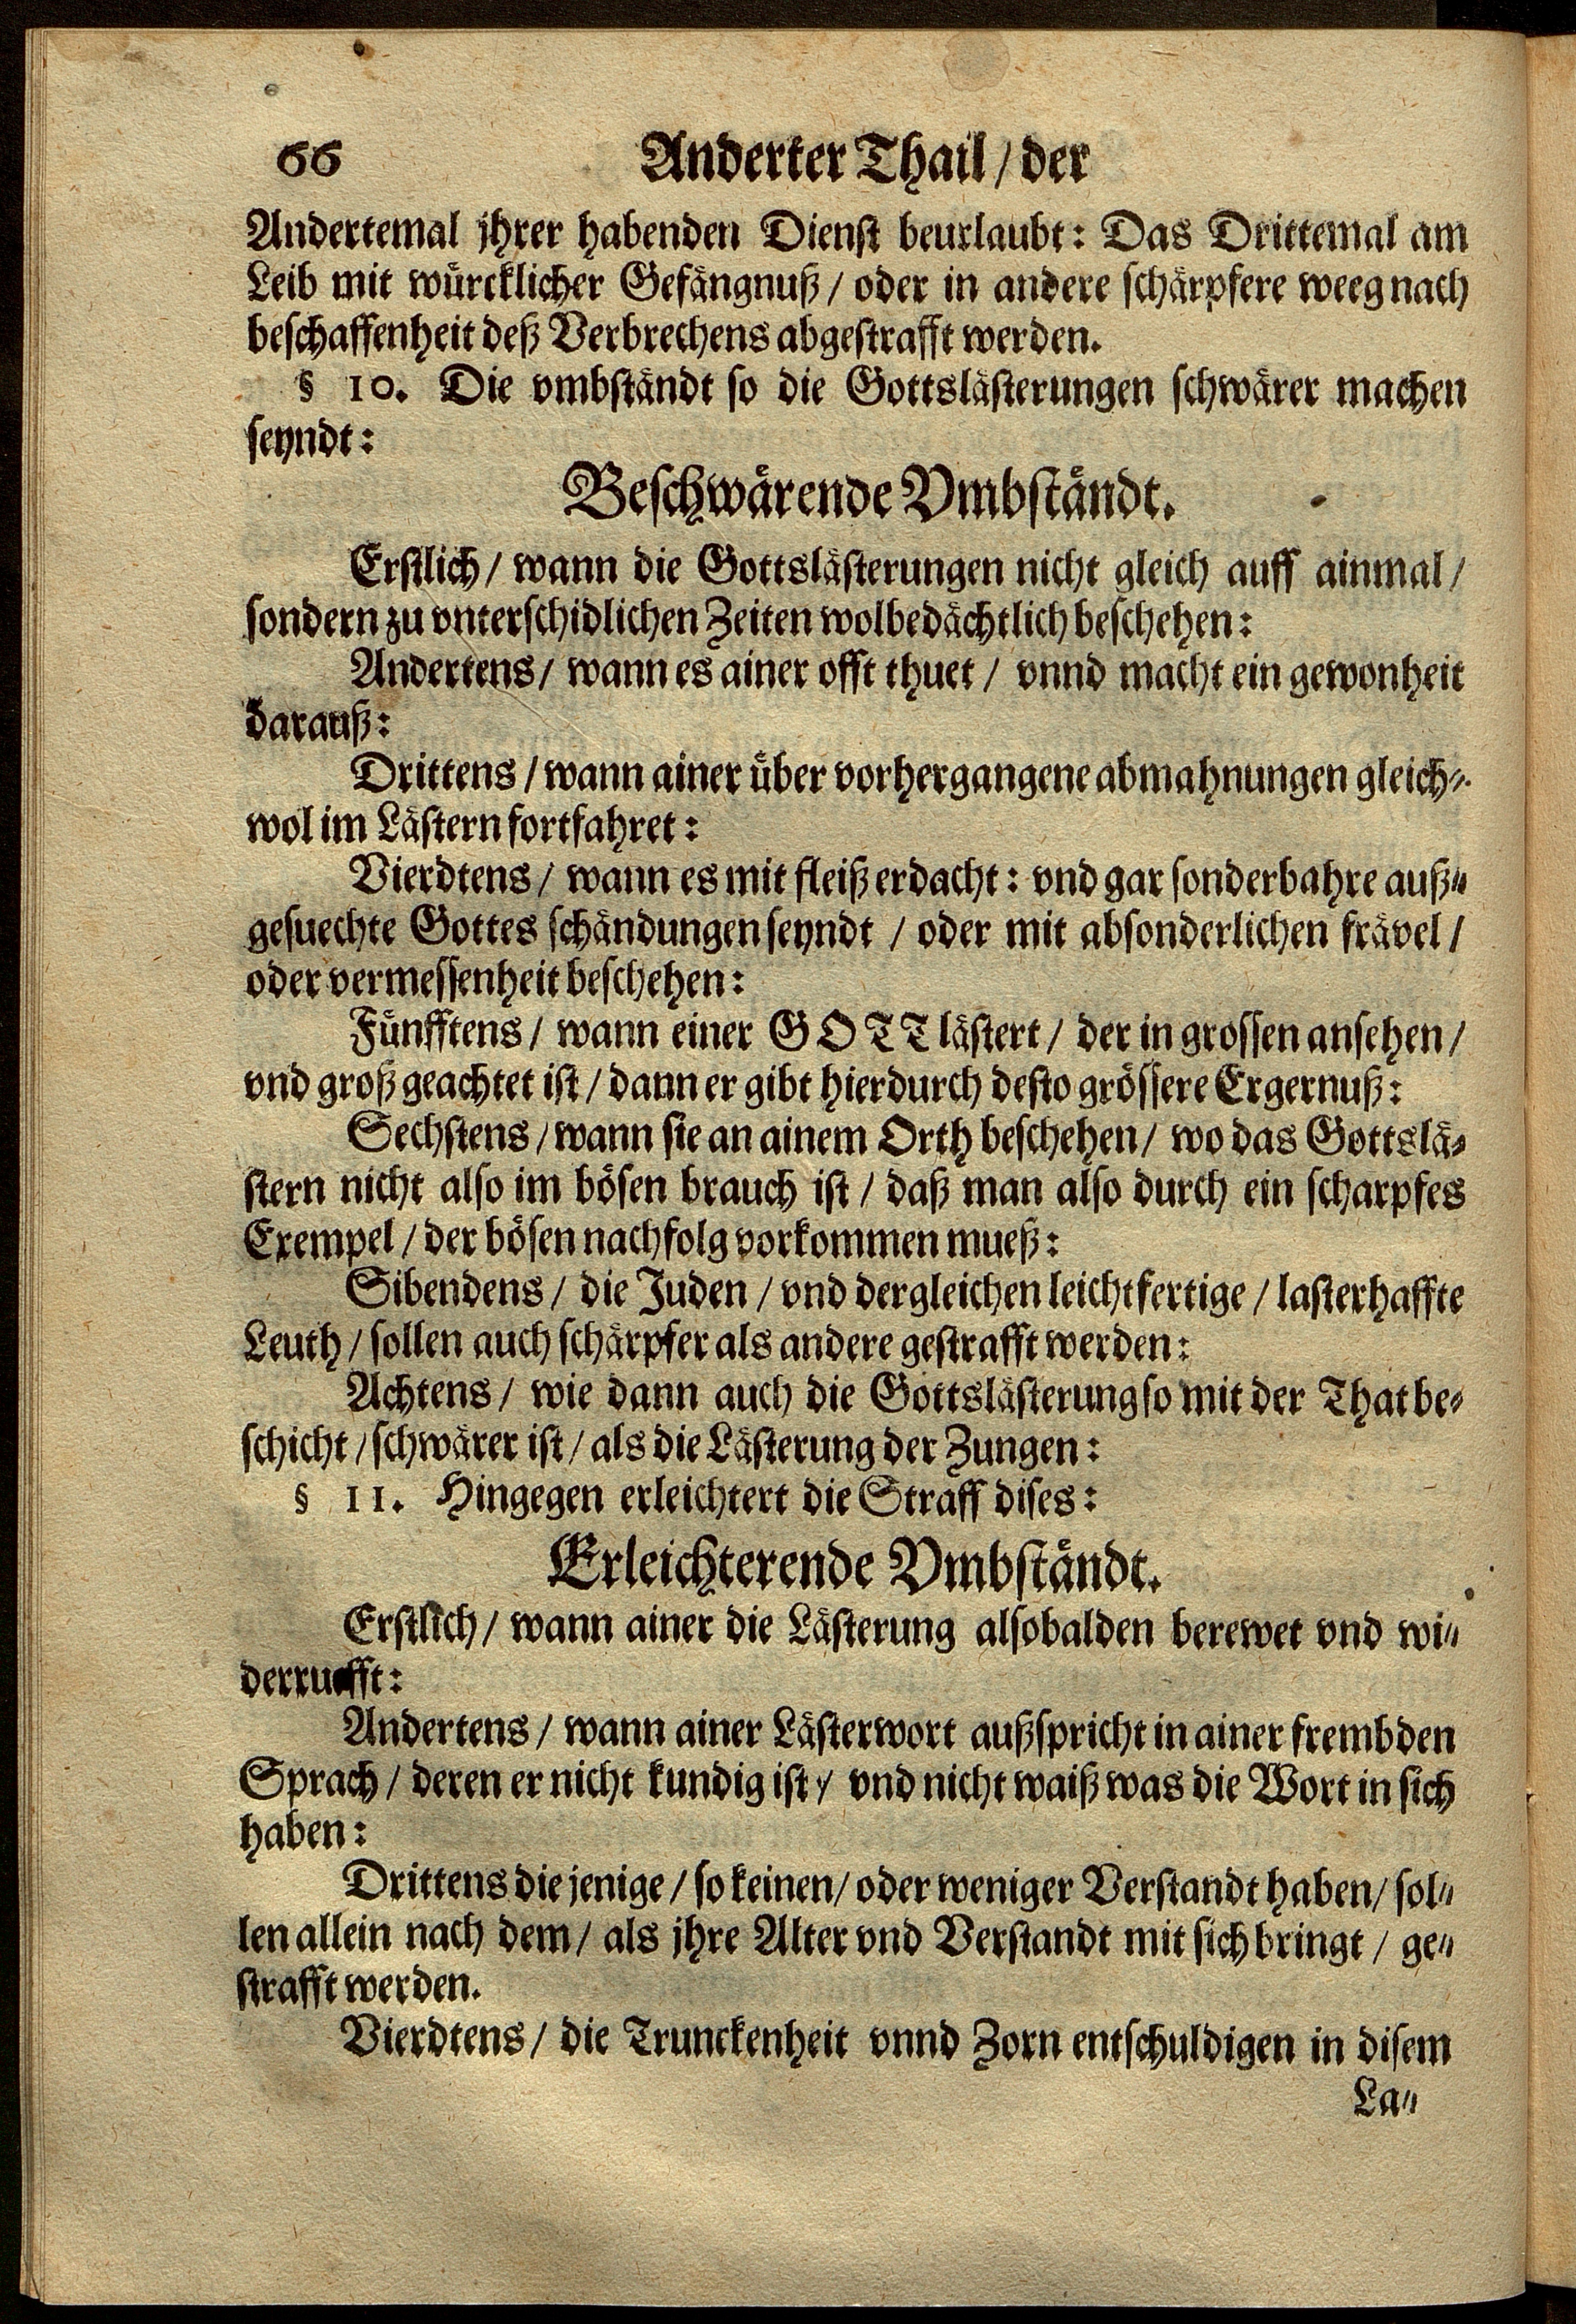 66 Anderter Thail / der
Andertemal jhrer habenden Dienst beurlaubt: Das Drittemal am
Leib mit würcklicher Gefängnuß / oder in andere schärpfere weeg nach
beschaffenheit deß Verbrechens abgestrafft werden.
§ 10. Die vmbständt so die Gottslästerungen schwärer machen
seyndt:
Beschwärende Vmbständt.
Erstlich / wann die Gottslästerungen nicht gleich auff ainmal /
sondern zu vnterschidlichen Zeiten wolbedächtlich beschehen:
Andertens / wann es ainer offt thuet / vnnd macht ein gewonheit
darauß:
Drittens / wann ainer über vorhergangene abmahnungen gleich-
wol im Lästern fortfahret:
Vierdtens / wann es mit fleiß erdacht: vnd gar sonderbahre auß-
gesuechte Gottes schändungen seyndt / oder mit absonderlichen frävel /
oder vermessenheit beschehen:
Fünfftens / wann einer GOTT lästert / der in grossen ansehen /
vnd groß geachtet ist / dann er gibt hierdurch desto grössere Ergernuß:
Sechstens / wann sie an ainem Orth beschehen / wo das Gottslä-
stern nicht also im bösen brauch ist / daß man also durch ein scharpfes
Exempel / der bösen nachfolg vorkommen mueß:
Sibendens / die Juden / vnd dergleichen leichtfertige / lasterhaffte
Leuth / sollen auch schärpfer als andere gestrafft werden:
Achtens / wie dann auch die Gottslästerung so mit der That be-
schicht / schwärer ist / als die Lästerung der Zungen:
§ 11. Hingegen erleichtert die Straff dises:
Erleichterende Vmbständt.
Erstlich / wann ainer die Lästerung alsobalden berewet vnd wi-
derruefft:
Andertens / wann ainer Lästerwort außspricht in ainer frembden
Sprach / deren er nicht kundig ist / vnd nicht waiß was die Wort in sich
haben:
Drittens die jenige / so keinen / oder weniger Verstandt haben / sol-
len allein nach dem / als jhre Alter vnd Verstandt mit sich bringt / ge-
strafft werden.
Vierdtens / die Trunckenheit vnnd Zorn entschuldigen in disem
La-